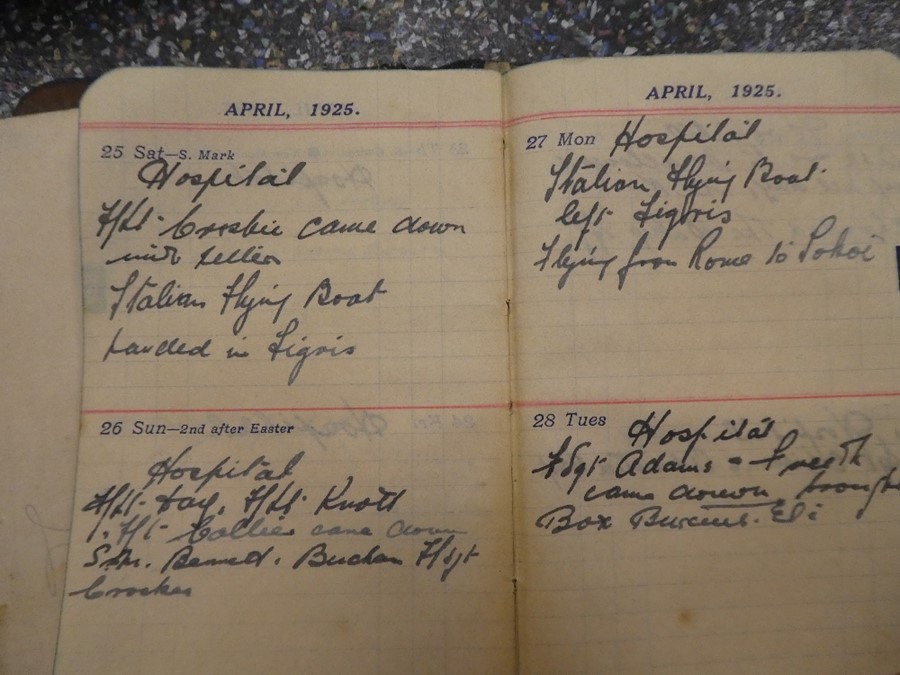 APRIL, 1925.
25 Sat—S. Mark
Hospital
F/Lt. Crosbie came down
with letters
Italian Flying Boat
landed in Tigris
26 Sun—2nd after Easter
Hospital
F/Lt. Day. F/Lt Knott
F/Lt Collier came down
S.M. Bennett. Buchan F/Sgt
Crocker
APRIL, 1925.
27 Mon Hospital
Italian Flying Boat
left Tigris
Flying from Rome to Tokio
28 Tues
Hospital
F Sgt Adams
came down brought
Box